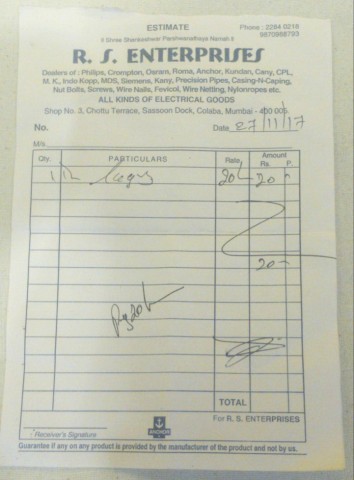 ESTIMATE
Phone : 2284 0218
9870868793
II Shree Shankeshwar Parshwanathaya Namah II
R. S. ENTERPRISES
Dealers of : Philips, Crompton, Osram, Roma, Anchor, Kundan, Cany, CPL,
M. K., Indo Kopp, MDS, Siemens, Kany, Precision Pipes, Casing-N-Caping,
Nut Bolts, Screws, Wire Nails, Fevicol, Wire Netting, Nylonropes etc.
ALL KINDS OF ELECTRICAL GOODS
Shop No. 3, Chottu Terrace, Sassoon Dock, Colaba, Mumbai - 400 005.
No.
Date 27/11/17
M/s.
Qty. PARTICULARS Rate Amount
Rs. P.
20 20
20
TOTAL
For R. S. ENTERPRISES
Receiver's Signature
ANCHOR
Guarantee if any on any product is provided by the manufacturer of the product and not by us.